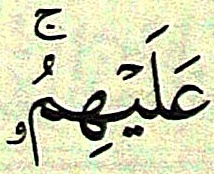 عَلَيْهِمُۥۚ